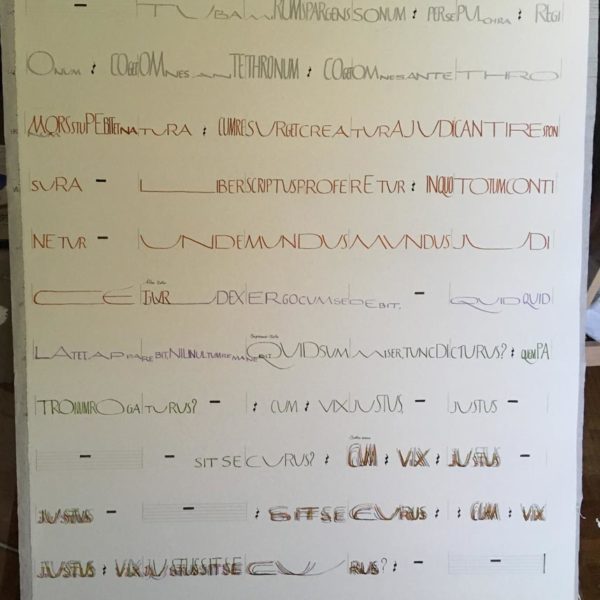 TUBA MIRUM SPARGENS SONUM : PER SEPULCHRA : REGI
ONUM : COGET OMNES ANTE THRONUM : COGET OMNES ANTE THRO
MORS STUPEBIT ET NATURA : CUM RESURGET CREATURA JUDICANTI RESPON
SURA - LIBER SCRIPTUS PROFERETUR : IN QUO TOTUM CONTI
NETUR - UNDE MUNDUS MUNDUS JUDI
CÉTUR JUDEX ERGO CUM SEDEBIT, - QUIDQUID
LATET, APPAREBIT, NIL INULTUM REMANEBIT. QUID SUM MISER, TUNC DICTURUS? : QUEM PA
TRONUM ROGATURUS? - : CUM : VIX JUSTUS, - JUSTUS -
- - SIT SECURUS? : CUM : VIX : JUSTUS -
JUSTUS - - : SIT SECURUS : : CUM : VIX
JUSTUS : VIX JUSTUS SIT SE CU RUS? : - -